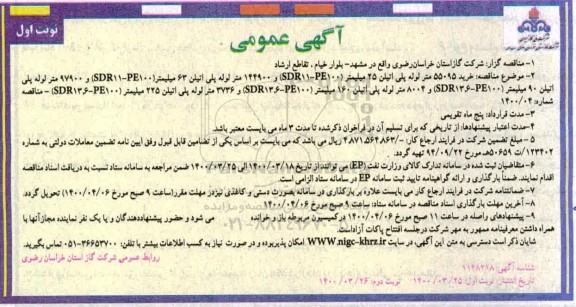 نوبت اول
آگهی عمومی
۱- مناقصه گزار: شرکت گازاستان خراسان‌رضوی واقع در مشهد- بلوار خیام ، تقاطع ارشاد
۲- موضوع مناقصه: خرید ۵۵۰۹۵ متر لوله پلی اتیلن ۲۵ میلیمتر (SDR11-PE100) و ۱۴۴۹۰۰ متر لوله پلی اتیلن ۶۳ میلیمتر (SDR11-PE100) و ۹۷۹۰۰ متر لوله پلی
اتیلن ۹۰ میلیمتر (SDR13.6-PE100) و ۸۰۰۴ متر لوله پلی اتیلن ۱۶۰ میلیمتر (SDR13.6-PE100) و ۳۷۳۶ متر لوله پلی اتیلن ۲۲۵ میلیمتر (SDR13.6-PE100) - مناقصه
شماره: ۱۴۰۰/۰۴
۳- مدت قرارداد: پنج ماه تقویمی
۴- مدت اعتبار پیشنهادها: از تاریخی که برای تسلیم آن در فراخوان ذکرشده تا مدت ۳ ماه می بایست معتبر باشد.
۵- مبلغ تضمین شرکت در فرایند ارجاع کار: ۴٫۸۷۱٫۵۶۴٫۸۶۳/- ریال می باشد که می بایست بر اساس یکی از تضامین قابل قبول وفق آیین نامه تضمین معاملات دولتی به شماره
۱۲۳۴۰۲/ت۵۰۶۵۹ه مورخ ۹۴/۰۹/۲۲ تهیه گردد.
۶- متقاضیان ثبت شده در سامانه تدارک کالای وزارت نفت (EP) می توانند از تاریخ ۱۴۰۰/۰۳/۱۸ الی ۱۴۰۰/۰۳/۲۵ ضمن مراجعه به سامانه ستاد نسبت به دریافت اسناد مناقصه
اقدام نمایند. ضمناً بارگذاری و ارائه گواهینامه تایید ثبت سامانه EP در سامانه ستاد الزامی است.
۷- ضمانتنامه شرکت در فرایند ارجاع کار می بایست علاوه بر بارگذاری در سامانه بصورت دستی و کاغذی نیزدر مهلت مقرر(ساعت ۹ صبح مورخ ۱۴۰۰/۰۴/۰۶) تحویل گردد.
۸- آخرین مهلت بارگذاری اسناد مناقصه در سامانه ستاد: ساعت ۹ صبح مورخ ۱۴۰۰/۰۴/۰۶
۹- پیشنهادهای واصله در ساعت ۱۱ صبح مورخ ۱۴۰۰/۰۴/۰۶ درکمیسیون مربوطه باز و خوانده می شود و حضور پیشنهاددهندگان و یا یک نفر نماینده مجازآنها با
همراه داشتن معرفینامه ممهور به مهر شرکت درجلسه افتتاح پاکات آزاداست.
شایان ذکر است دسترسی به متن این آگهی، در سایت WWW.nigc-khrz.ir امکان پذیربوده و در صورت نیاز به کسب اطلاعات بیشتر با تلفن: ۳۶۶۵۳۷۰۰-۰۵۱ تماس بگیرید.
روابط عمومی شرکت گاز استان خراسان رضوی
شناسه آگهی: ۱۱۴۸۲۱۸
تاریخ انتشار: نوبت اول: ۱۴۰۰/۰۳/۲۵ نوبت دوم: ۱۴۰۰/۰۳/۲۶